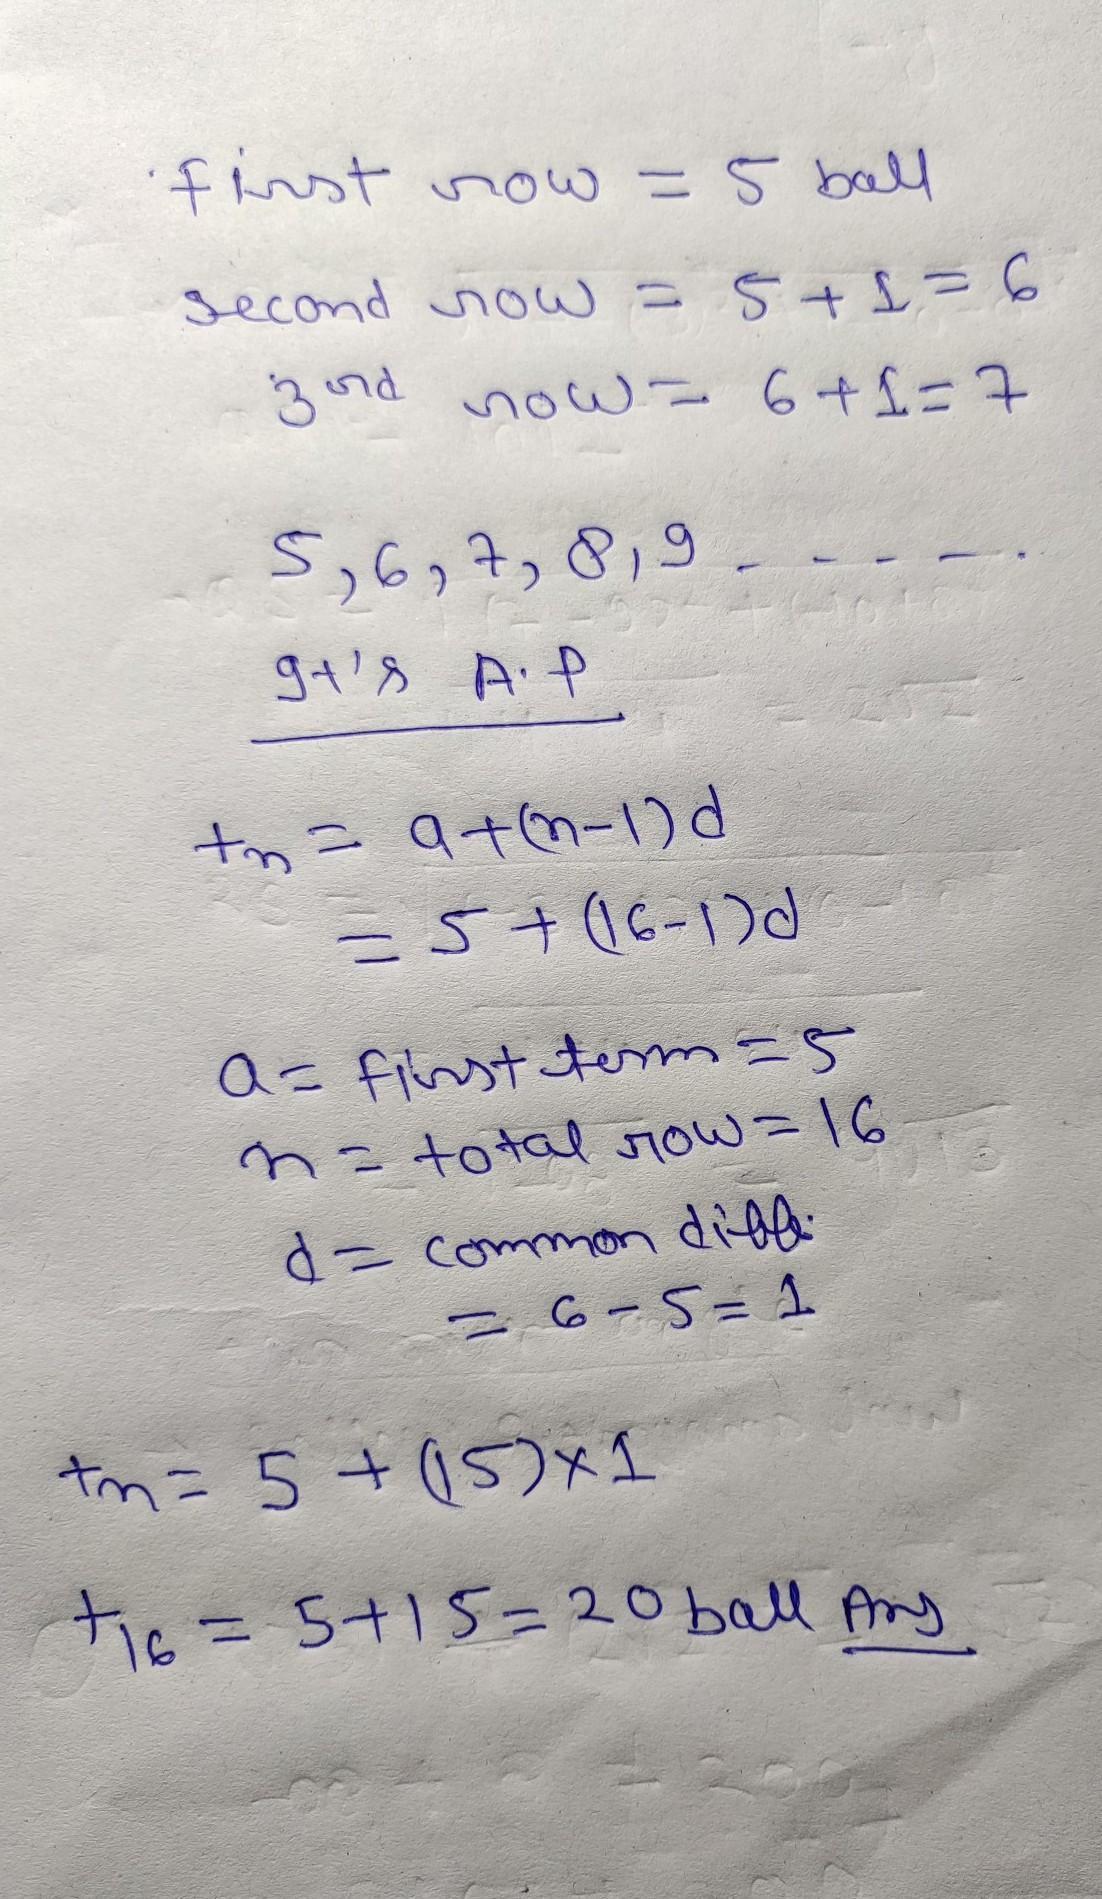 first row = 5 ball
second row = 5 + 1 = 6
3rd row = 6 + 1 = 7
5, 6, 7, 8, 9 - - - - -.
It's A.P
tn = a+(n-1)d
= 5 + (16-1)d
a = first term = 5
n = total row = 16
d = common diff.
= 6 - 5 = 1
tn = 5 + (15)×1
t16 = 5+15 = 20 ball Ans